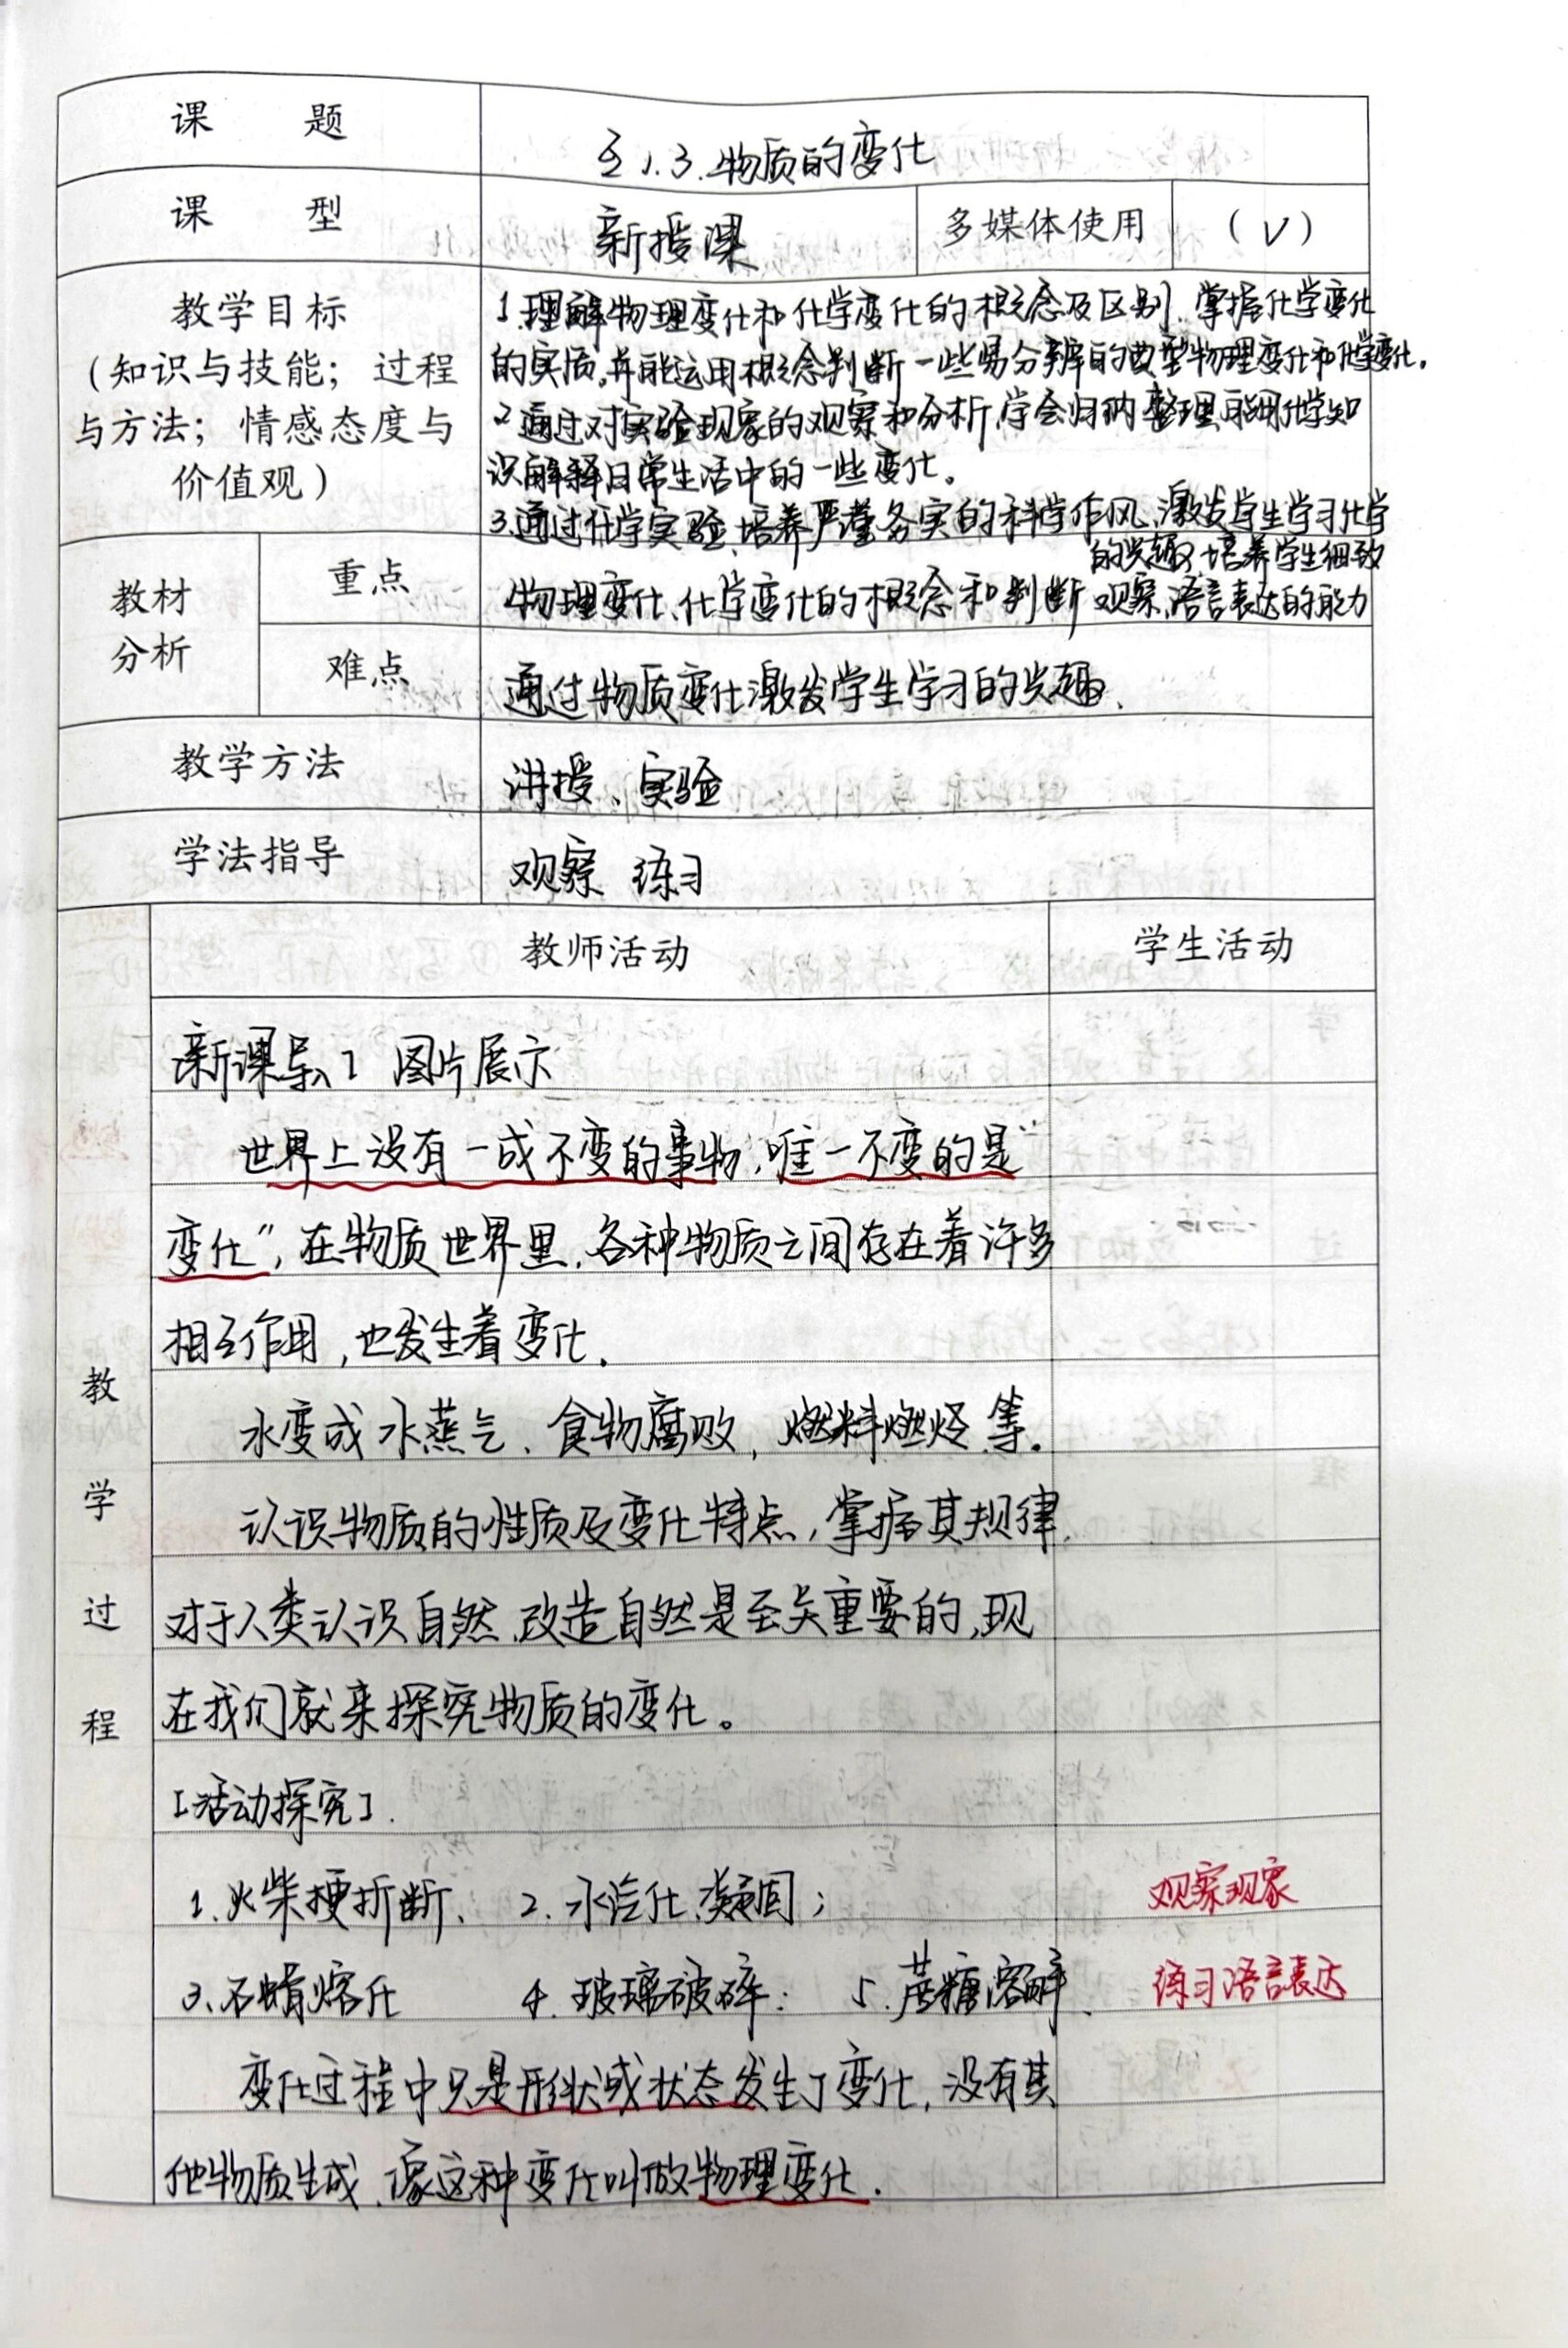 课 题
§1.3.物质的变化
课 型
新授课
多媒体使用
(√)
教学目标
(知识与技能;过程
与方法;情感态度与
价值观)
1.理解物理变化和化学变化的概念及区别、掌握化学变化
的实质,并能运用概念判断一些易分辨的典型物理变化和化学变化。
2.通过对实验现象的观察和分析,学会归纳、整理、能用化学知
识解释日常生活中的一些变化。
3.通过化学实验、培养严谨务实的科学作风、激发学生学习化学
的兴趣、培养学生细致
观察、语言表达的能力
教材
分析
重点
物理变化、化学变化的概念和判断
难点
通过物质变化激发学生学习的兴趣、
教学方法
讲授、实验
学法指导
观察 练习
教师活动
学生活动
教
学
过
程
新课导入] 图片展示
世界上没有一成不变的事物,唯一不变的是“
变化”,在物质世界里,各种物质之间存在着许多
相互作用,也发生着变化.
水变成水蒸气、食物腐败,燃料燃烧等.
认识物质的性质及变化特点,掌握其规律,
对于人类认识自然、改造自然是至关重要的,现
在我们就来探究物质的变化。
[活动探究].
1.火柴梗折断、 2.水汽化、凝固;
观察现象
3.石蜡熔化 4.玻璃破碎; 5.蔗糖溶解、
练习语言表达
变化过程中只是形状或状态发生了变化,没有其
他物质生成、像这种变化叫做物理变化.